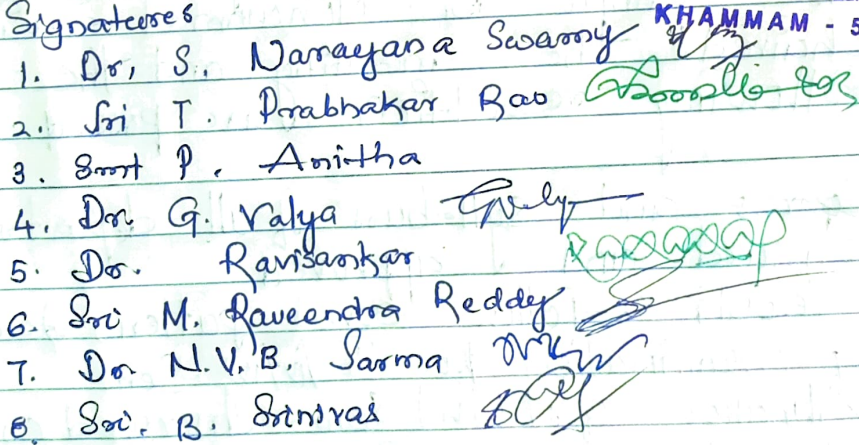 Signatures KHAMMAM - 5
1. Dr, S. Narayana Swamy
2. Sri T. Prabhakar Rao
3. Smt P. Anitha
4. Dr. G. Valya
5. Dr. Ravisankar
6. Sri M. Raveendra Reddy
7. Dr. N.V.B. Sarma
8. Sri. B. Srinivas